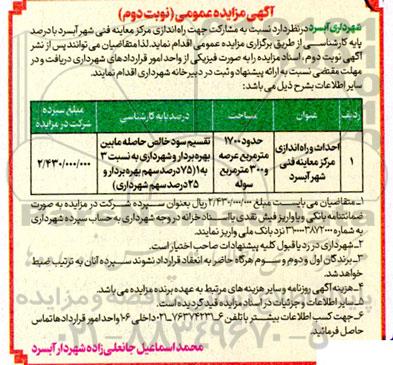 آگهی مزایده عمومی (نوبت دوم)
شهرداری آبسرد در نظر دارد نسبت به مشارکت جهت راه اندازی مرکز معاینه فنی شهر آبسرد با درصد
پایه کارشناسی از طریق برگزاری مزایده عمومی اقدام نماید. لذا متقاضیان می توانند پس از نشر
آگهی نوبت دوم ، اسناد مزایده را به صورت فیزیکی از واحد امور قراردادهای شهرداری دریافت و در
مهلت مقتضی نسبت به ارائه پیشنهاد و ثبت در دبیرخانه شهرداری اقدام نمایند.
سایر اطلاعات بشرح ذیل می باشد:
ردیف عنوان مساحت درصد پایه کارشناسی مبلغ سپرده شرکت در مزایده
۱ احداث و راه اندازی مرکز معاینه فنی شهر آبسرد حدود ۱۷۰۰ مترمربع عرصه و ۳۰۰ مترمربع سوله تقسیم سود خالص حاصله مابین بهره بردار و شهرداری به نسبت ۳ به ۱ (۷۵ درصد سهم بهره بردار و ۲۵ درصد سهم شهرداری) ۲/۴۳۰/۰۰۰/۰۰۰
۱- متقاضیان می بایست مبلغ ۲/۴۳۰/۰۰۰/۰۰۰ ریال بعنوان سپرده شرکت در مزایده به صورت
ضمانتنامه بانکی و یا واریز فیش نقدی یا اسناد خزانه در وجه شهرداری به حساب سپرده شهرداری
به شماره ۳۱۰۰۰۰۳۸۷۲۰۰۰ نزد بانک ملی واریز نمایند.
۲- شهرداری در رد یا قبول کلیه پیشنهادات صاحب اختیار است.
۳- برندگان اول و دوم و سوم هرگاه حاضر به انعقاد قرارداد نشوند سپرده آنان به ترتیب ضبط
خواهد شد.
۴- هزینه آگهی روزنامه و سایر هزینه های مرتبط به عهده برنده مزایده می باشد.
۵- سایر اطلاعات و جزئیات در اسناد مزایده قید گردیده است.
۶- جهت کسب اطلاعات بیشتر با تلفن ۶-۰۲۱۷۶۳۷۴۲۳۱ داخلی ۱۰۶ واحد امور قراردادها تماس
حاصل فرمائید.
محمد اسماعیل جانعلی زاده شهردار آبسرد
۰۲۱-۸۸۳۴۹۶۷۰-۵